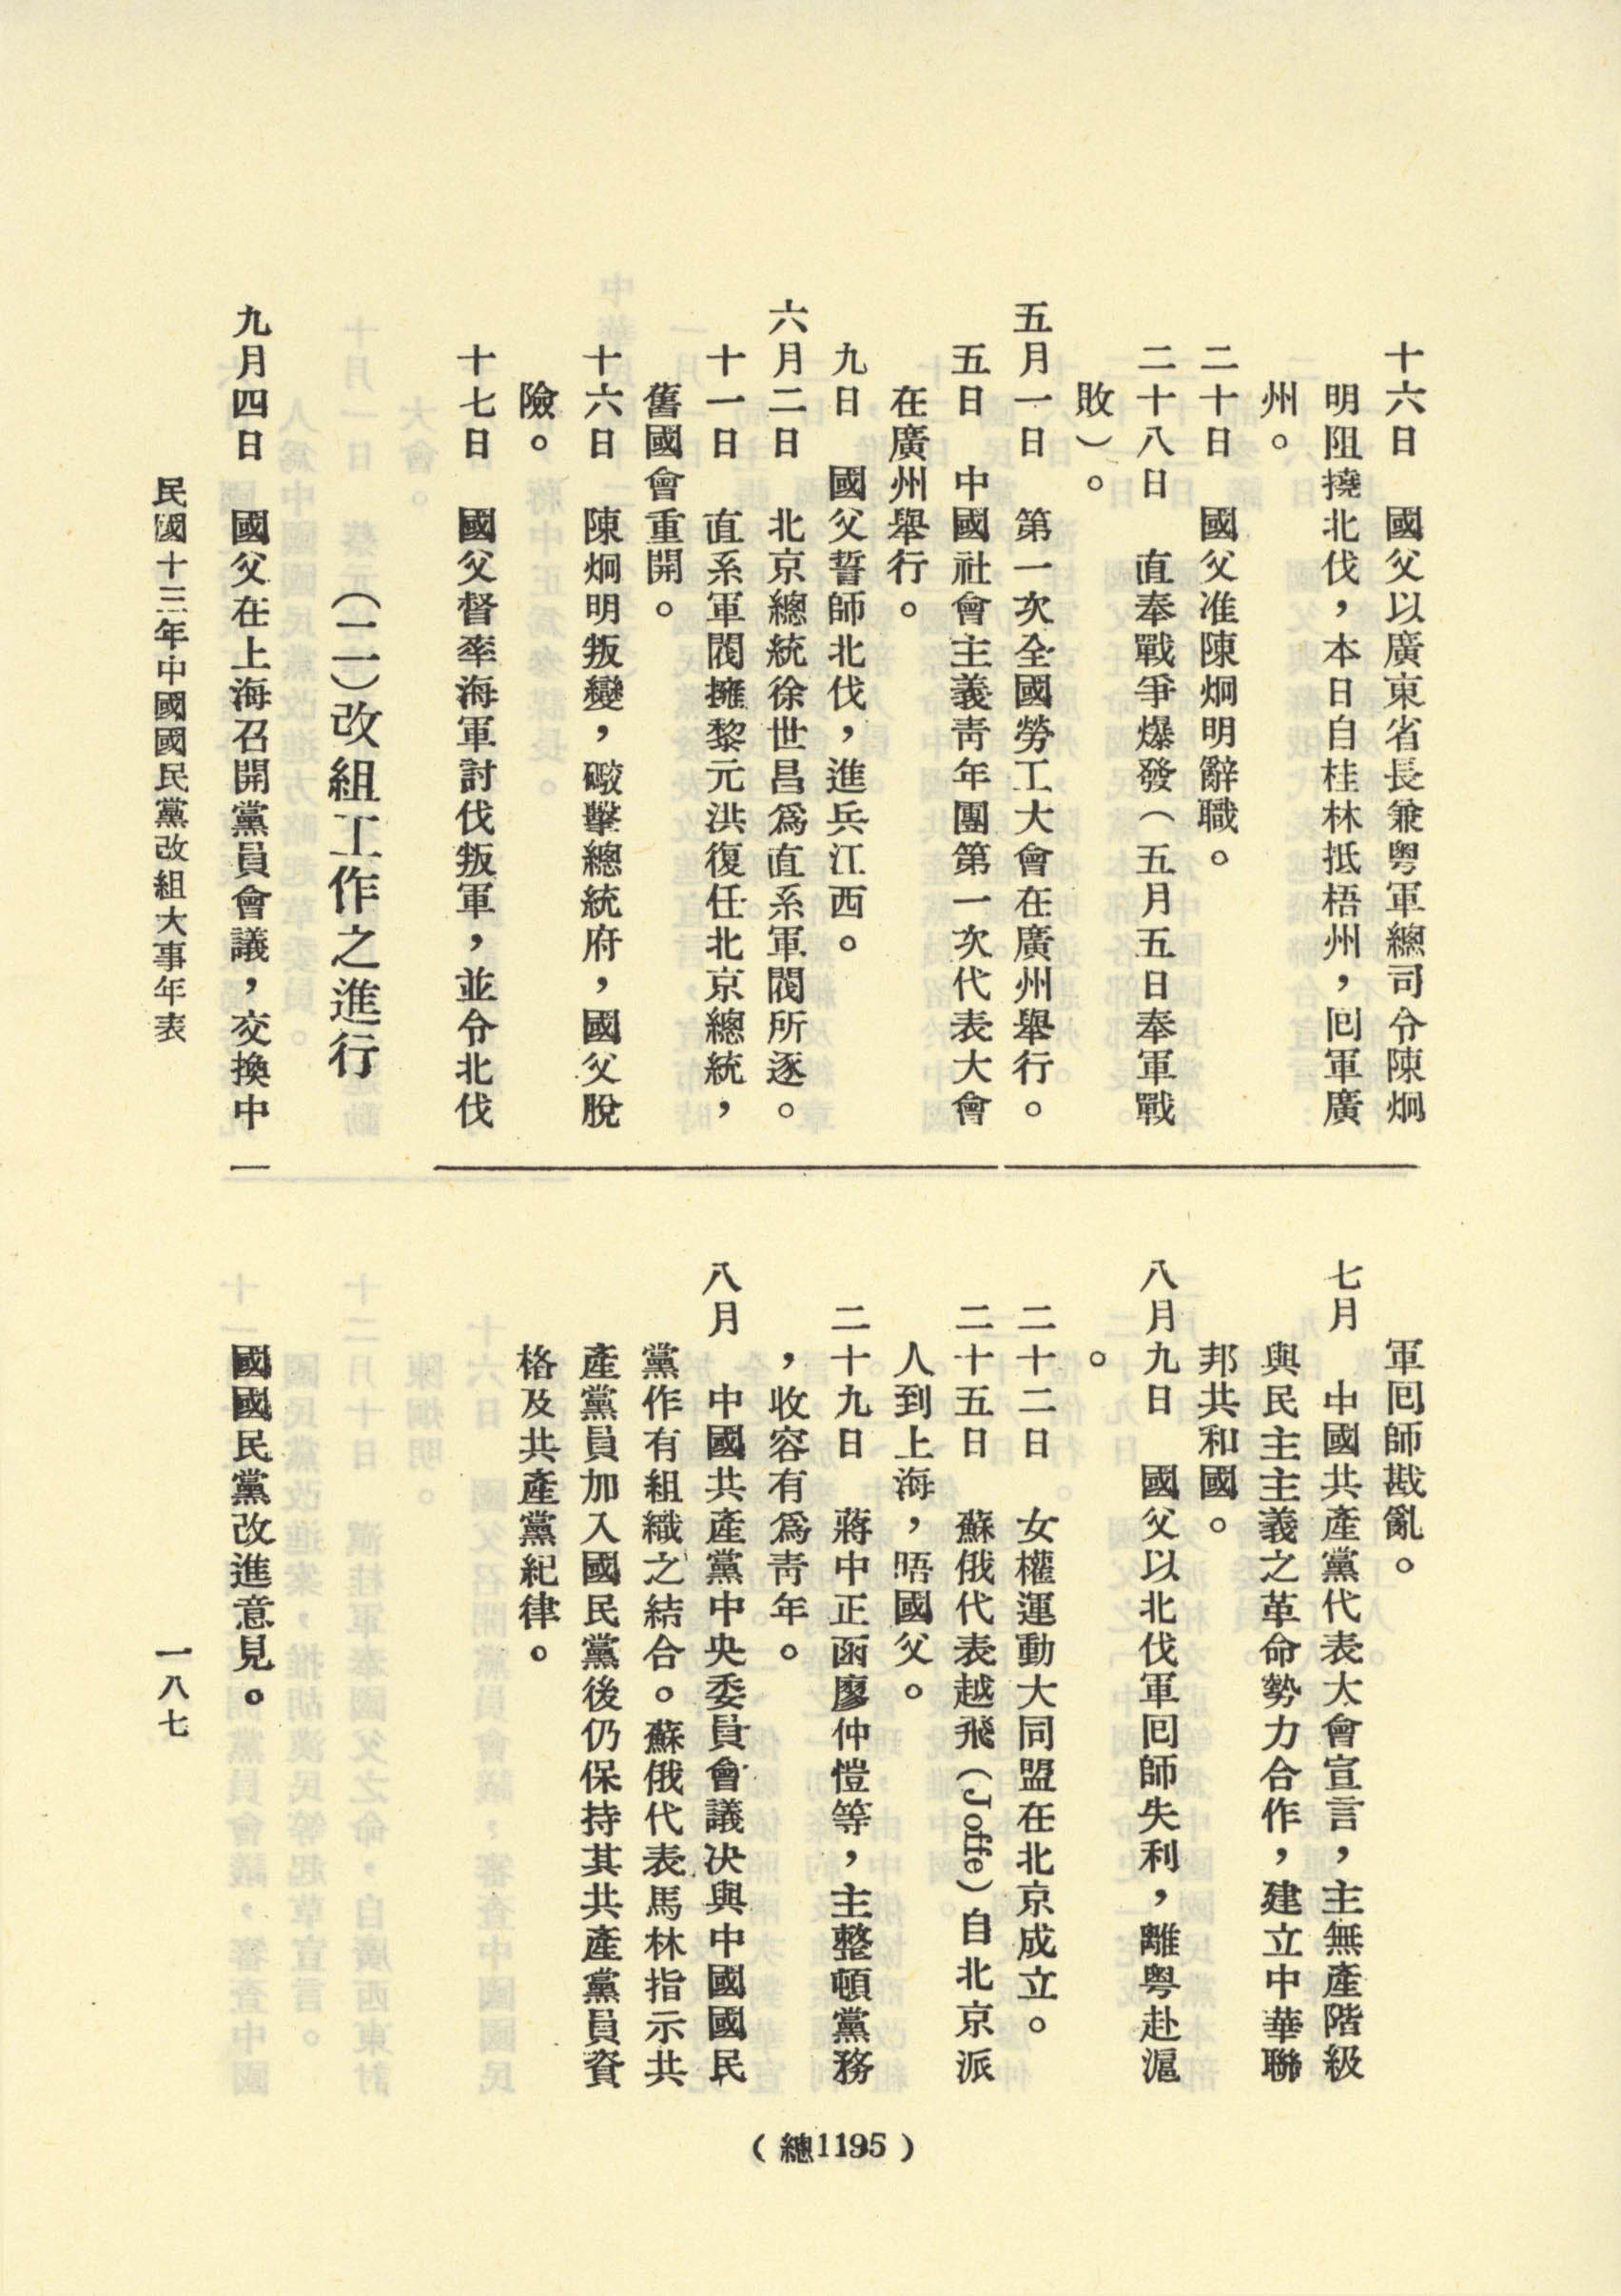 十六日　國父以廣東省長兼粤軍總司令陳炯
明阻撓北伐，本日自桂林抵梧州，囘軍廣
州。
二十日　國父准陳炯明辭職。
二十八日　直奉戰爭爆發（五月五日奉軍戰
敗）。
五月一日　第一次全國勞工大會在廣州舉行。
五日　中國社會主義靑年團第一次代表大會
在廣州舉行。
九日　國父誓師北伐，進兵江西。
六月二日　北京總統徐世昌爲直系軍閥所逐。
十一日　直系軍閥擁黎元洪復任北京總統，
舊國會重開。
十六日　陳炯明叛變，礮擊總統府，國父脫
險。
十七日　國父督率海軍討伐叛軍，並令北伐
軍囘師戡亂。
七月　中國共產黨代表大會宣言，主無產階級
與民主主義之革命勢力合作，建立中華聯
邦共和國。
八月九日　國父以北伐軍囘師失利，離粤赴滬
。
二十二日　女權運動大同盟在北京成立。
二十五日　蘇俄代表越飛（Joffe）自北京派
人到上海，晤國父。
二十九日　蔣中正函廖仲愷等，主整頓黨務
，收容有爲靑年。
八月　中國共產黨中央委員會議决與中國國民
黨作有組織之結合。蘇俄代表馬林指示共
產黨員加入國民黨後仍保持其共產黨員資
格及共產黨紀律。
（二）改組工作之進行
九月四日　國父在上海召開黨員會議，交換中
國國民黨改進意見。
民國十三年中國國民黨改組大事年表
一八七
（總1195）